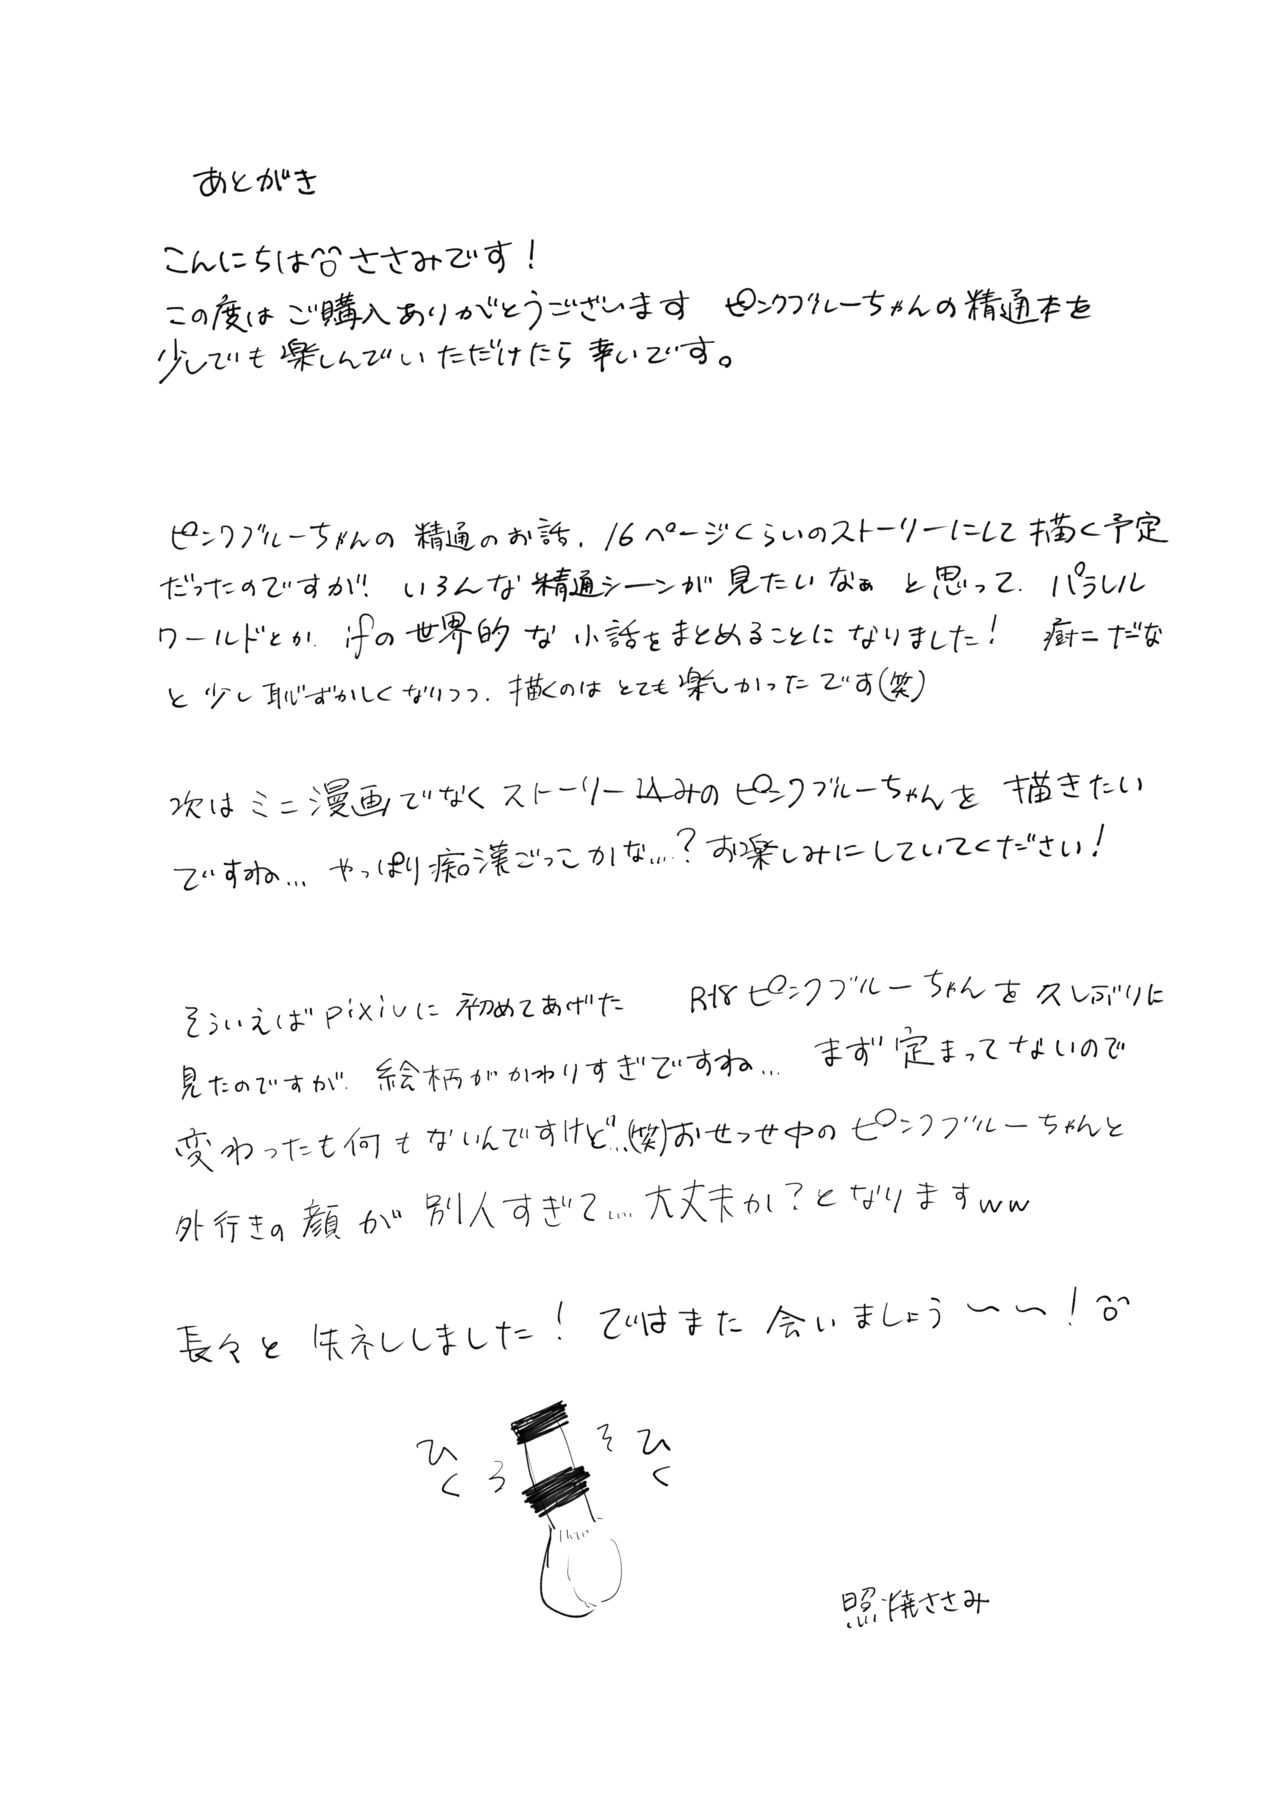 あとがき
こんにちは ささみです！
この度は ご購入ありがとうございます ピンクブルーちゃんの精通本を
少しでも楽しんでいただけたら幸いです。
ピンクブルーちゃんの精通のお話、16ページくらいのストーリーにして描く予定
だったのですが、いろんな精通シーンが見たいなぁと思って、パラレル
ワールドとか、ifの世界的な小話をまとめることになりました！ 厨二だな
と少し恥ずかしくなりつつ、描くのはとても楽しかったです(笑)
次はミニ漫画でなくストーリー込みのピンクブルーちゃんを描きたい
ですね… やっぱり痴漢ごっこかな…？お楽しみにしていてください！
そういえばpixivに初めてあげた R18ピンクブルーちゃんを久しぶりに
見たのですが、絵柄がかわりすぎですね… まず定まってないので
変わったも何もないんですけど…(笑)おせっせ中のピンクブルーちゃんと
外行きの顔が別人すぎて…大丈夫か？となりますww
長々と失礼しました！ではまた会いましょう〜〜！
ひく
ろ
そ
ひく
照焼ささみ